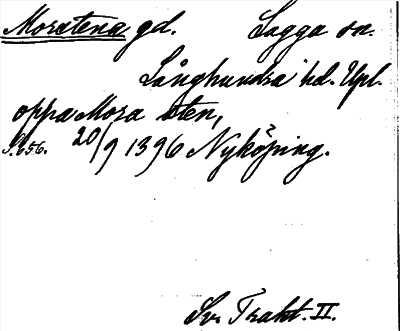 Morstena gd. Lagga sn.
Långhundra hd. Upl.
oppa Mora sten,
S. 656. 20/9 1396 Nyköping.
Sv. Trakt. II.